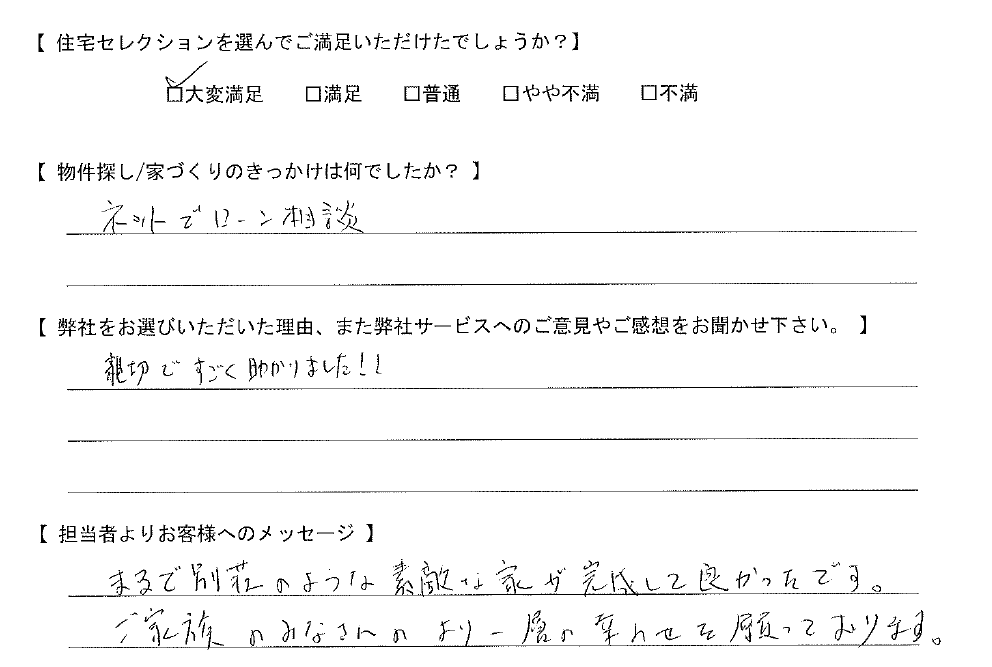 【 住宅セレクションを選んでご満足いただけたでしょうか？】
☑大変満足 □満足 □普通 □やや不満 □不満
【 物件探し/家づくりのきっかけは何でしたか？ 】
ネットでローン相談
【 弊社をお選びいただいた理由、また弊社サービスへのご意見やご感想をお聞かせ下さい。 】
親切ですごく助かりました!!
【 担当者よりお客様へのメッセージ 】
まるで別荘のような素敵な家が完成して良かったです。
ご家族のみなさんのより一層の幸わせを願っております。